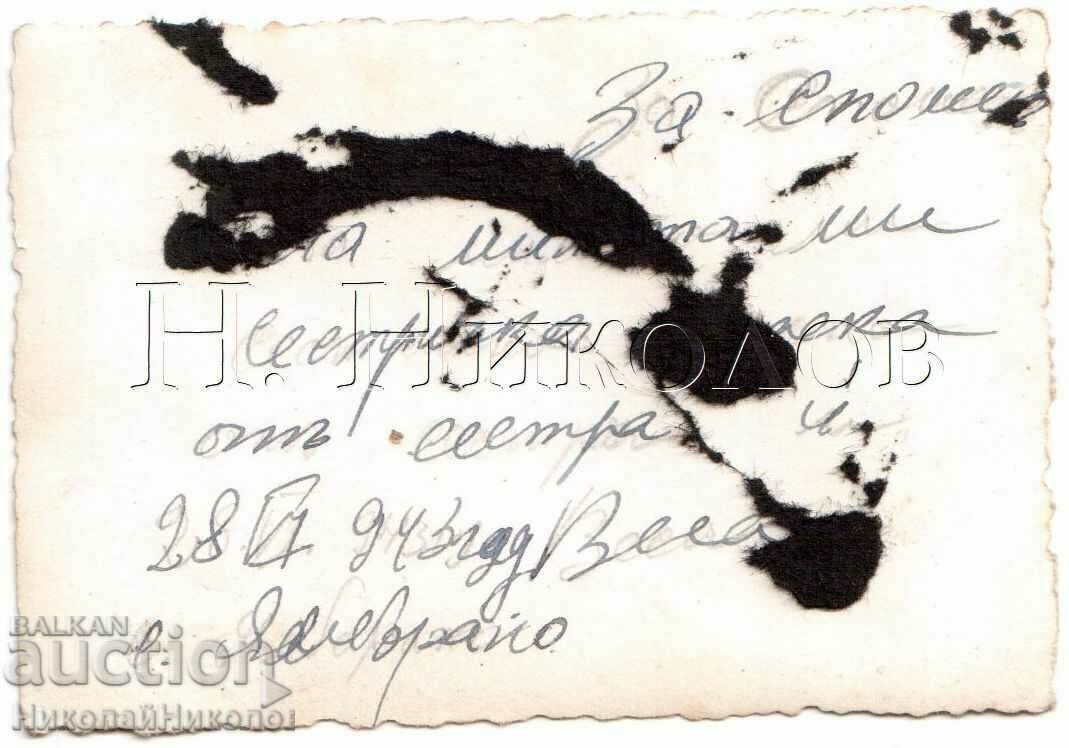 За спомен
на ми
сестричка
от сестра ѝ
28 VI 943 год Вела
с.
Н. Николов
BALKAN
auction
НиколайНиколов